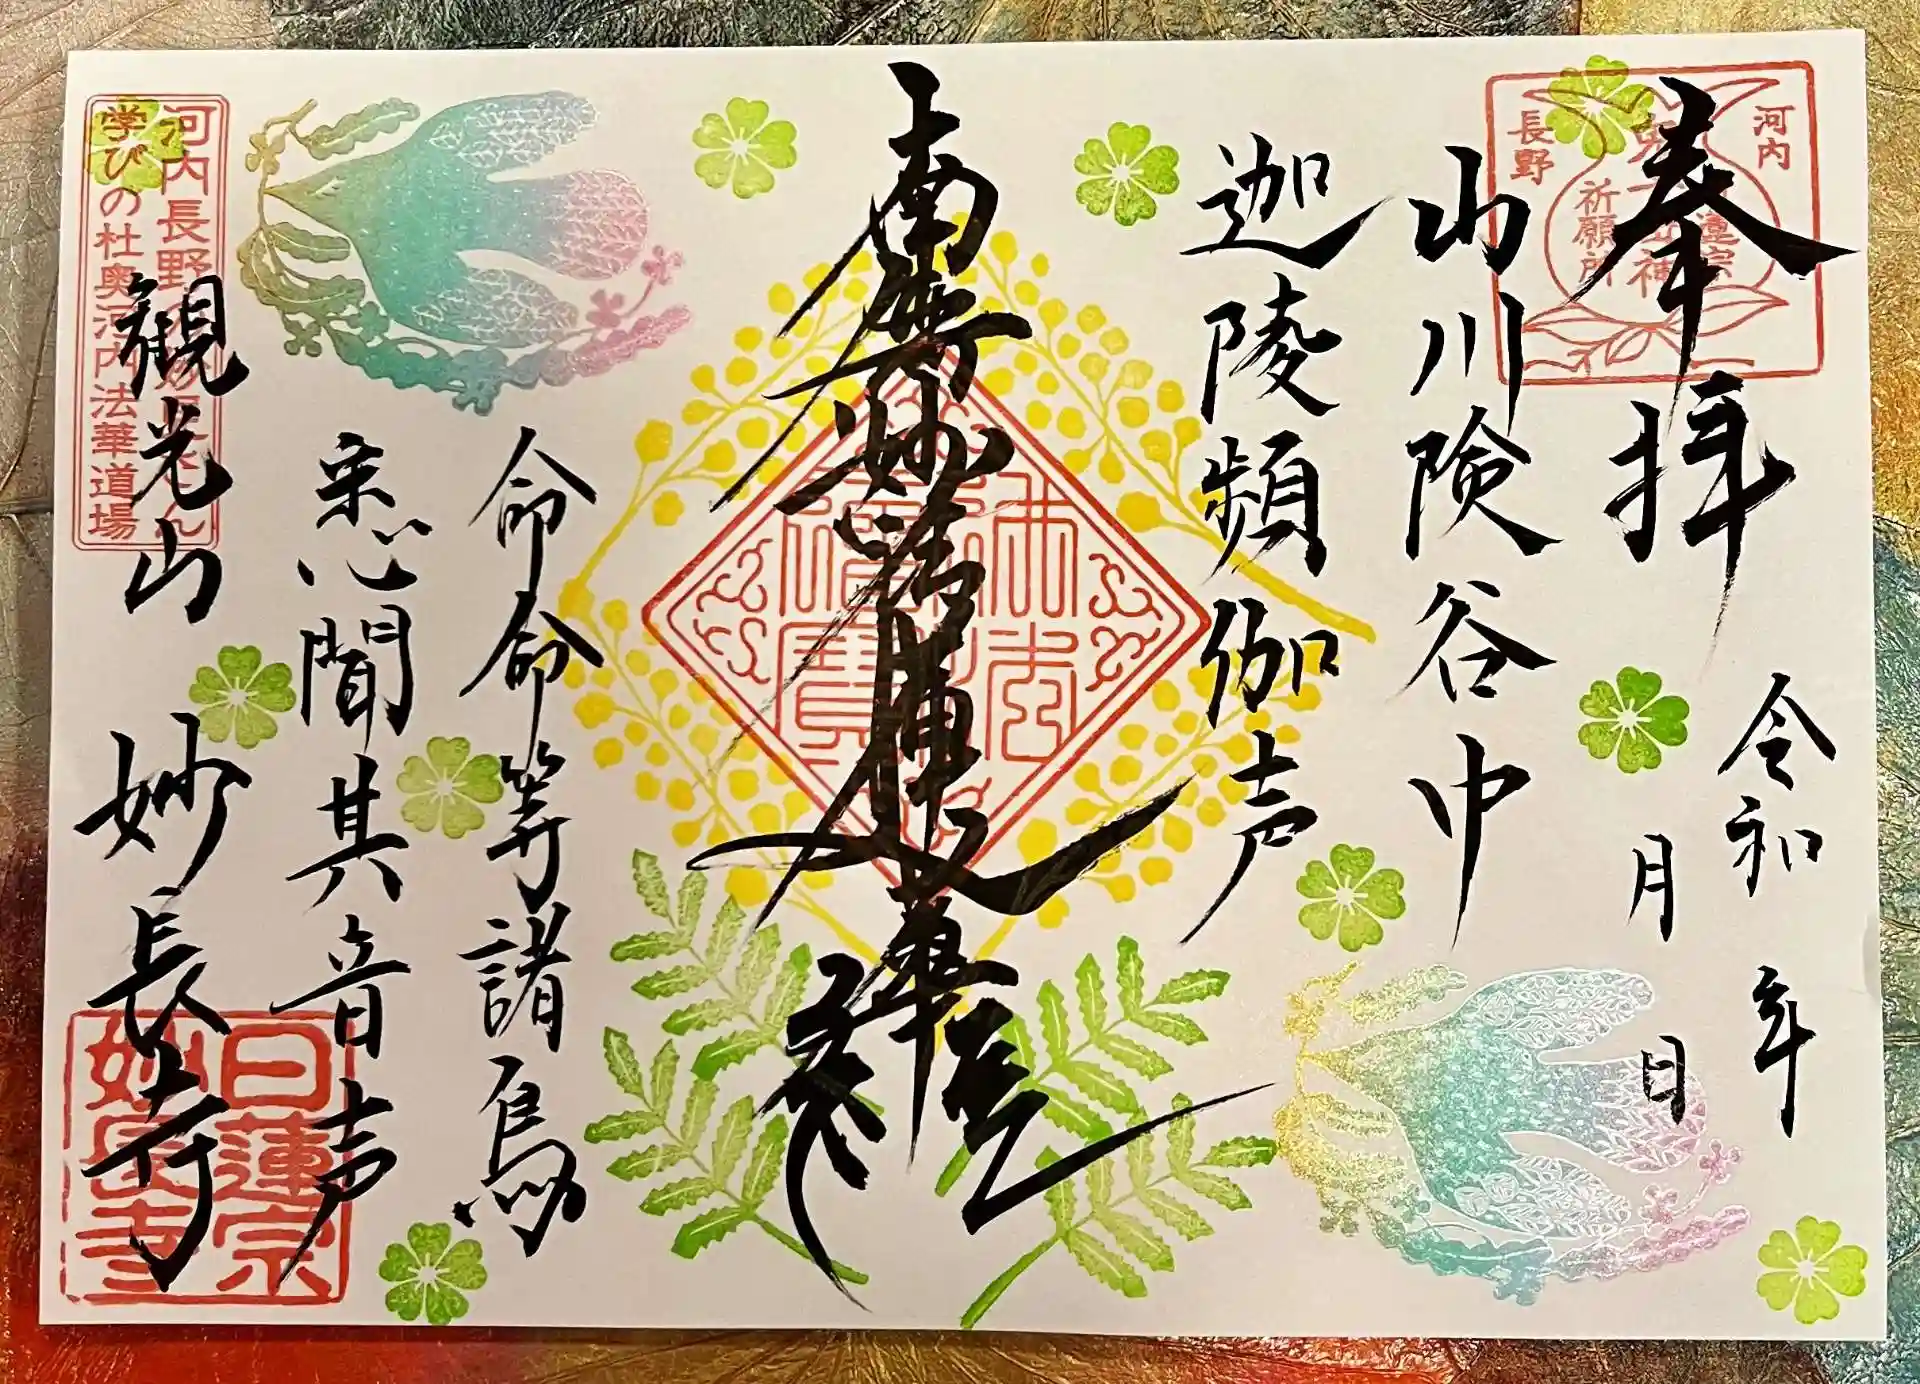 奉拝
令和 年
月 日
山川険谷中
迦陵頻伽声
南無妙法蓮華経
命命等諸鳥
悉聞其音声
観光山 妙長寺
河内
長野
祈願所
河内長野
学びの杜奥河内法華道場
日蓮宗
妙長寺